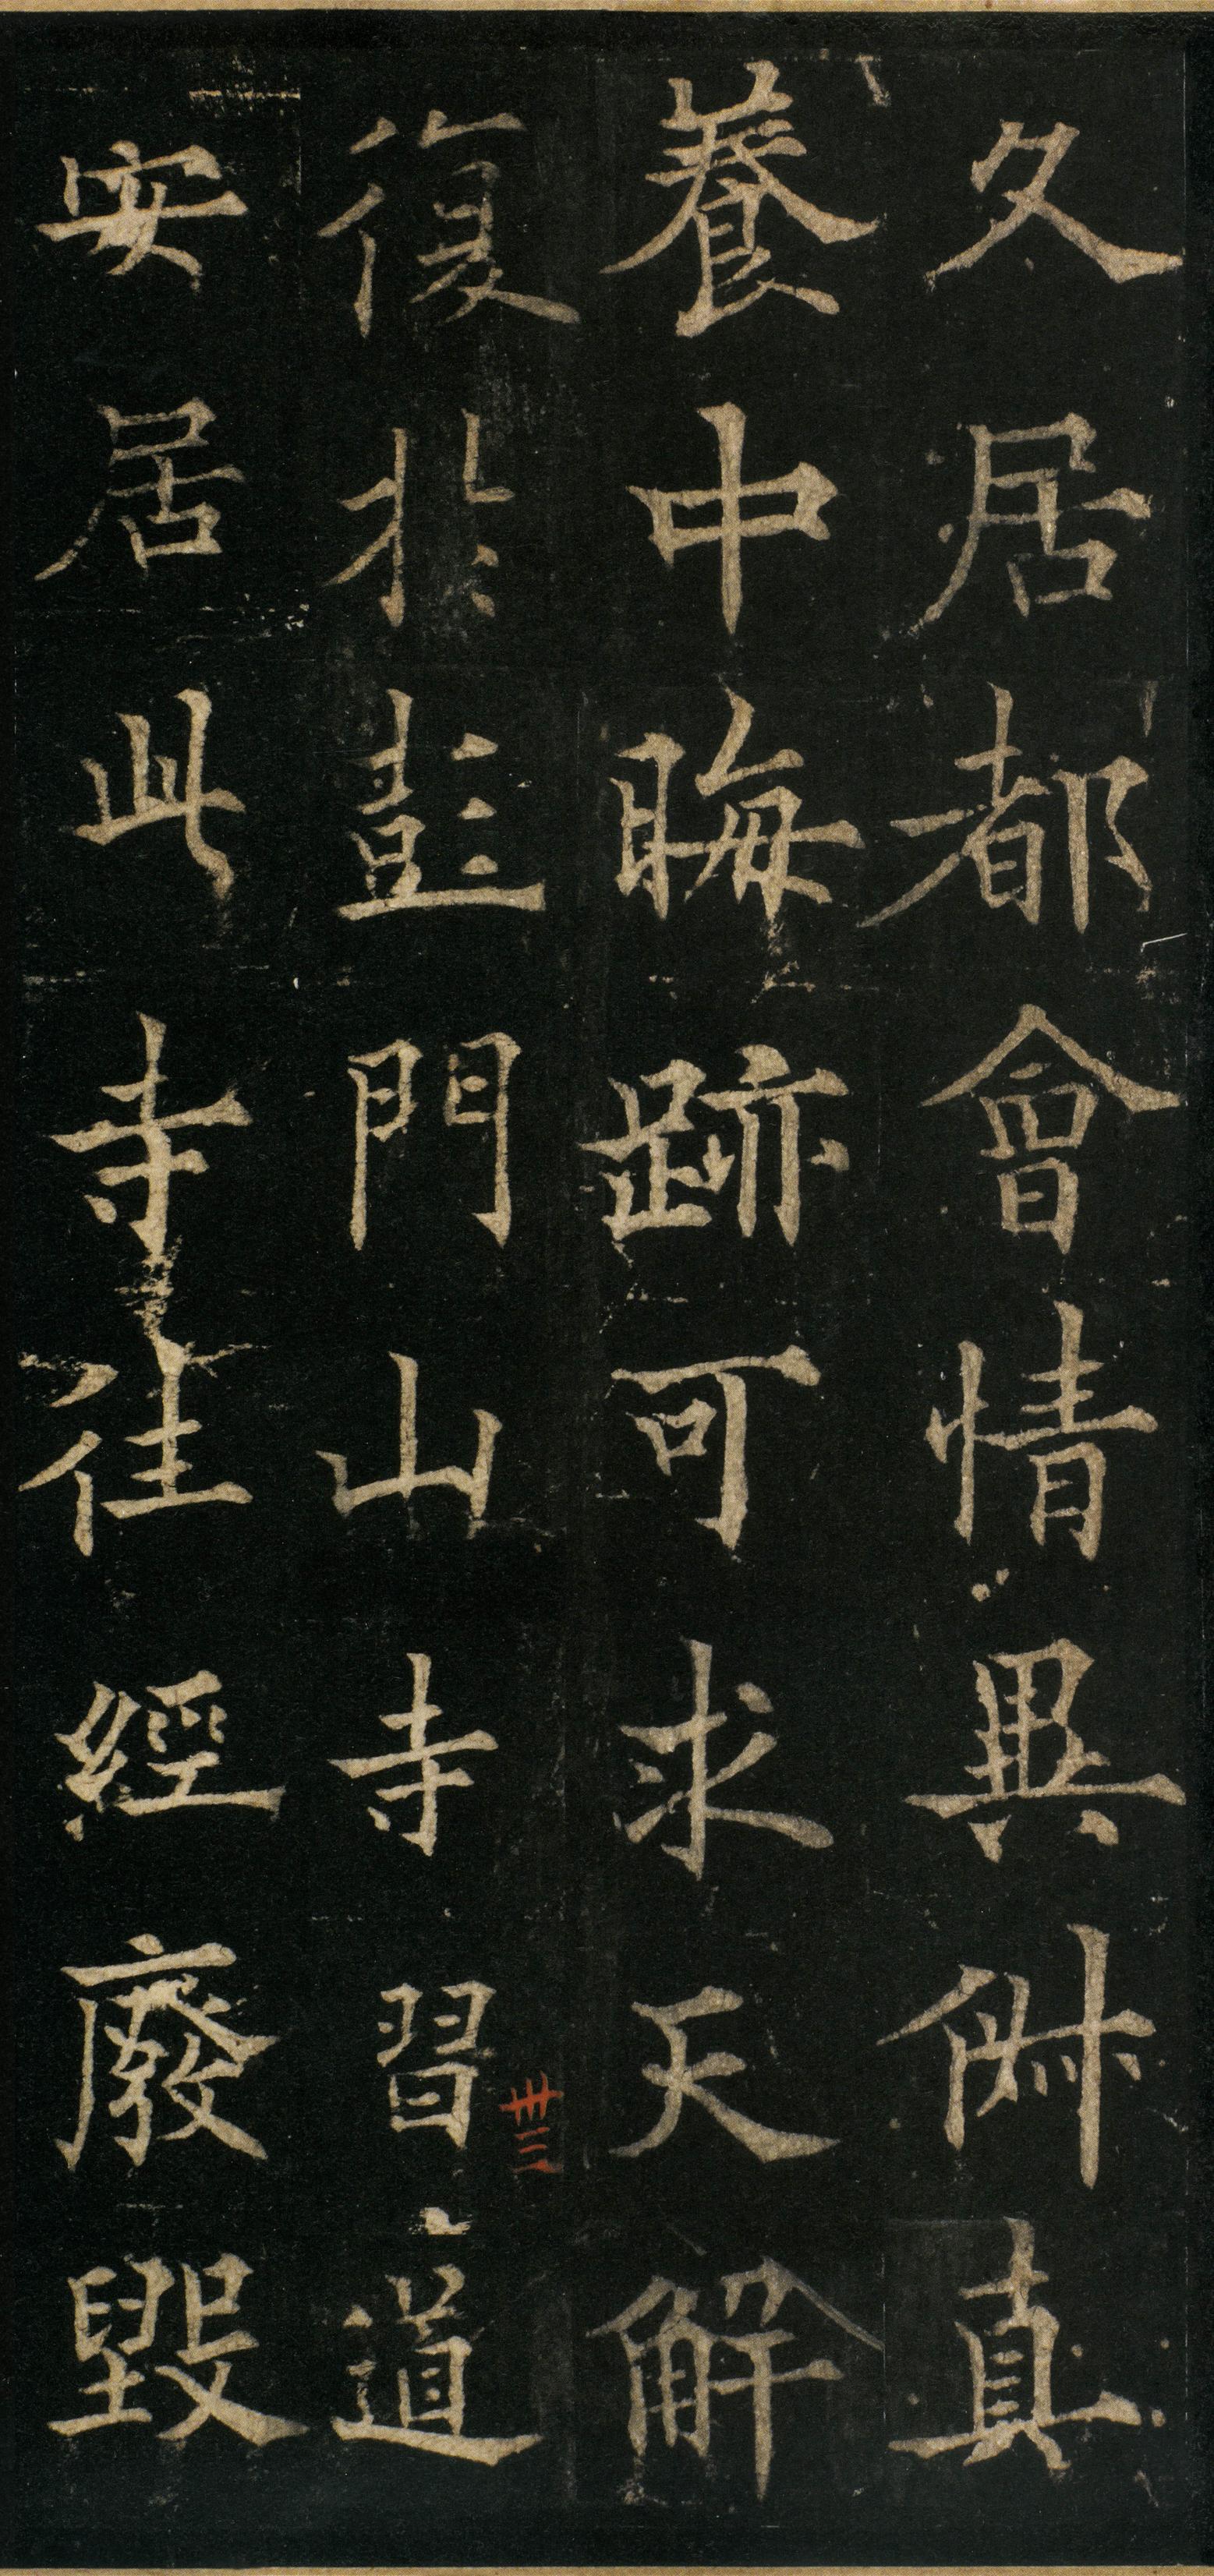 久居都會情異俶真
養中晦跡可求天解
復於彭門山寺習道
安居此寺往經廢毀
卅三